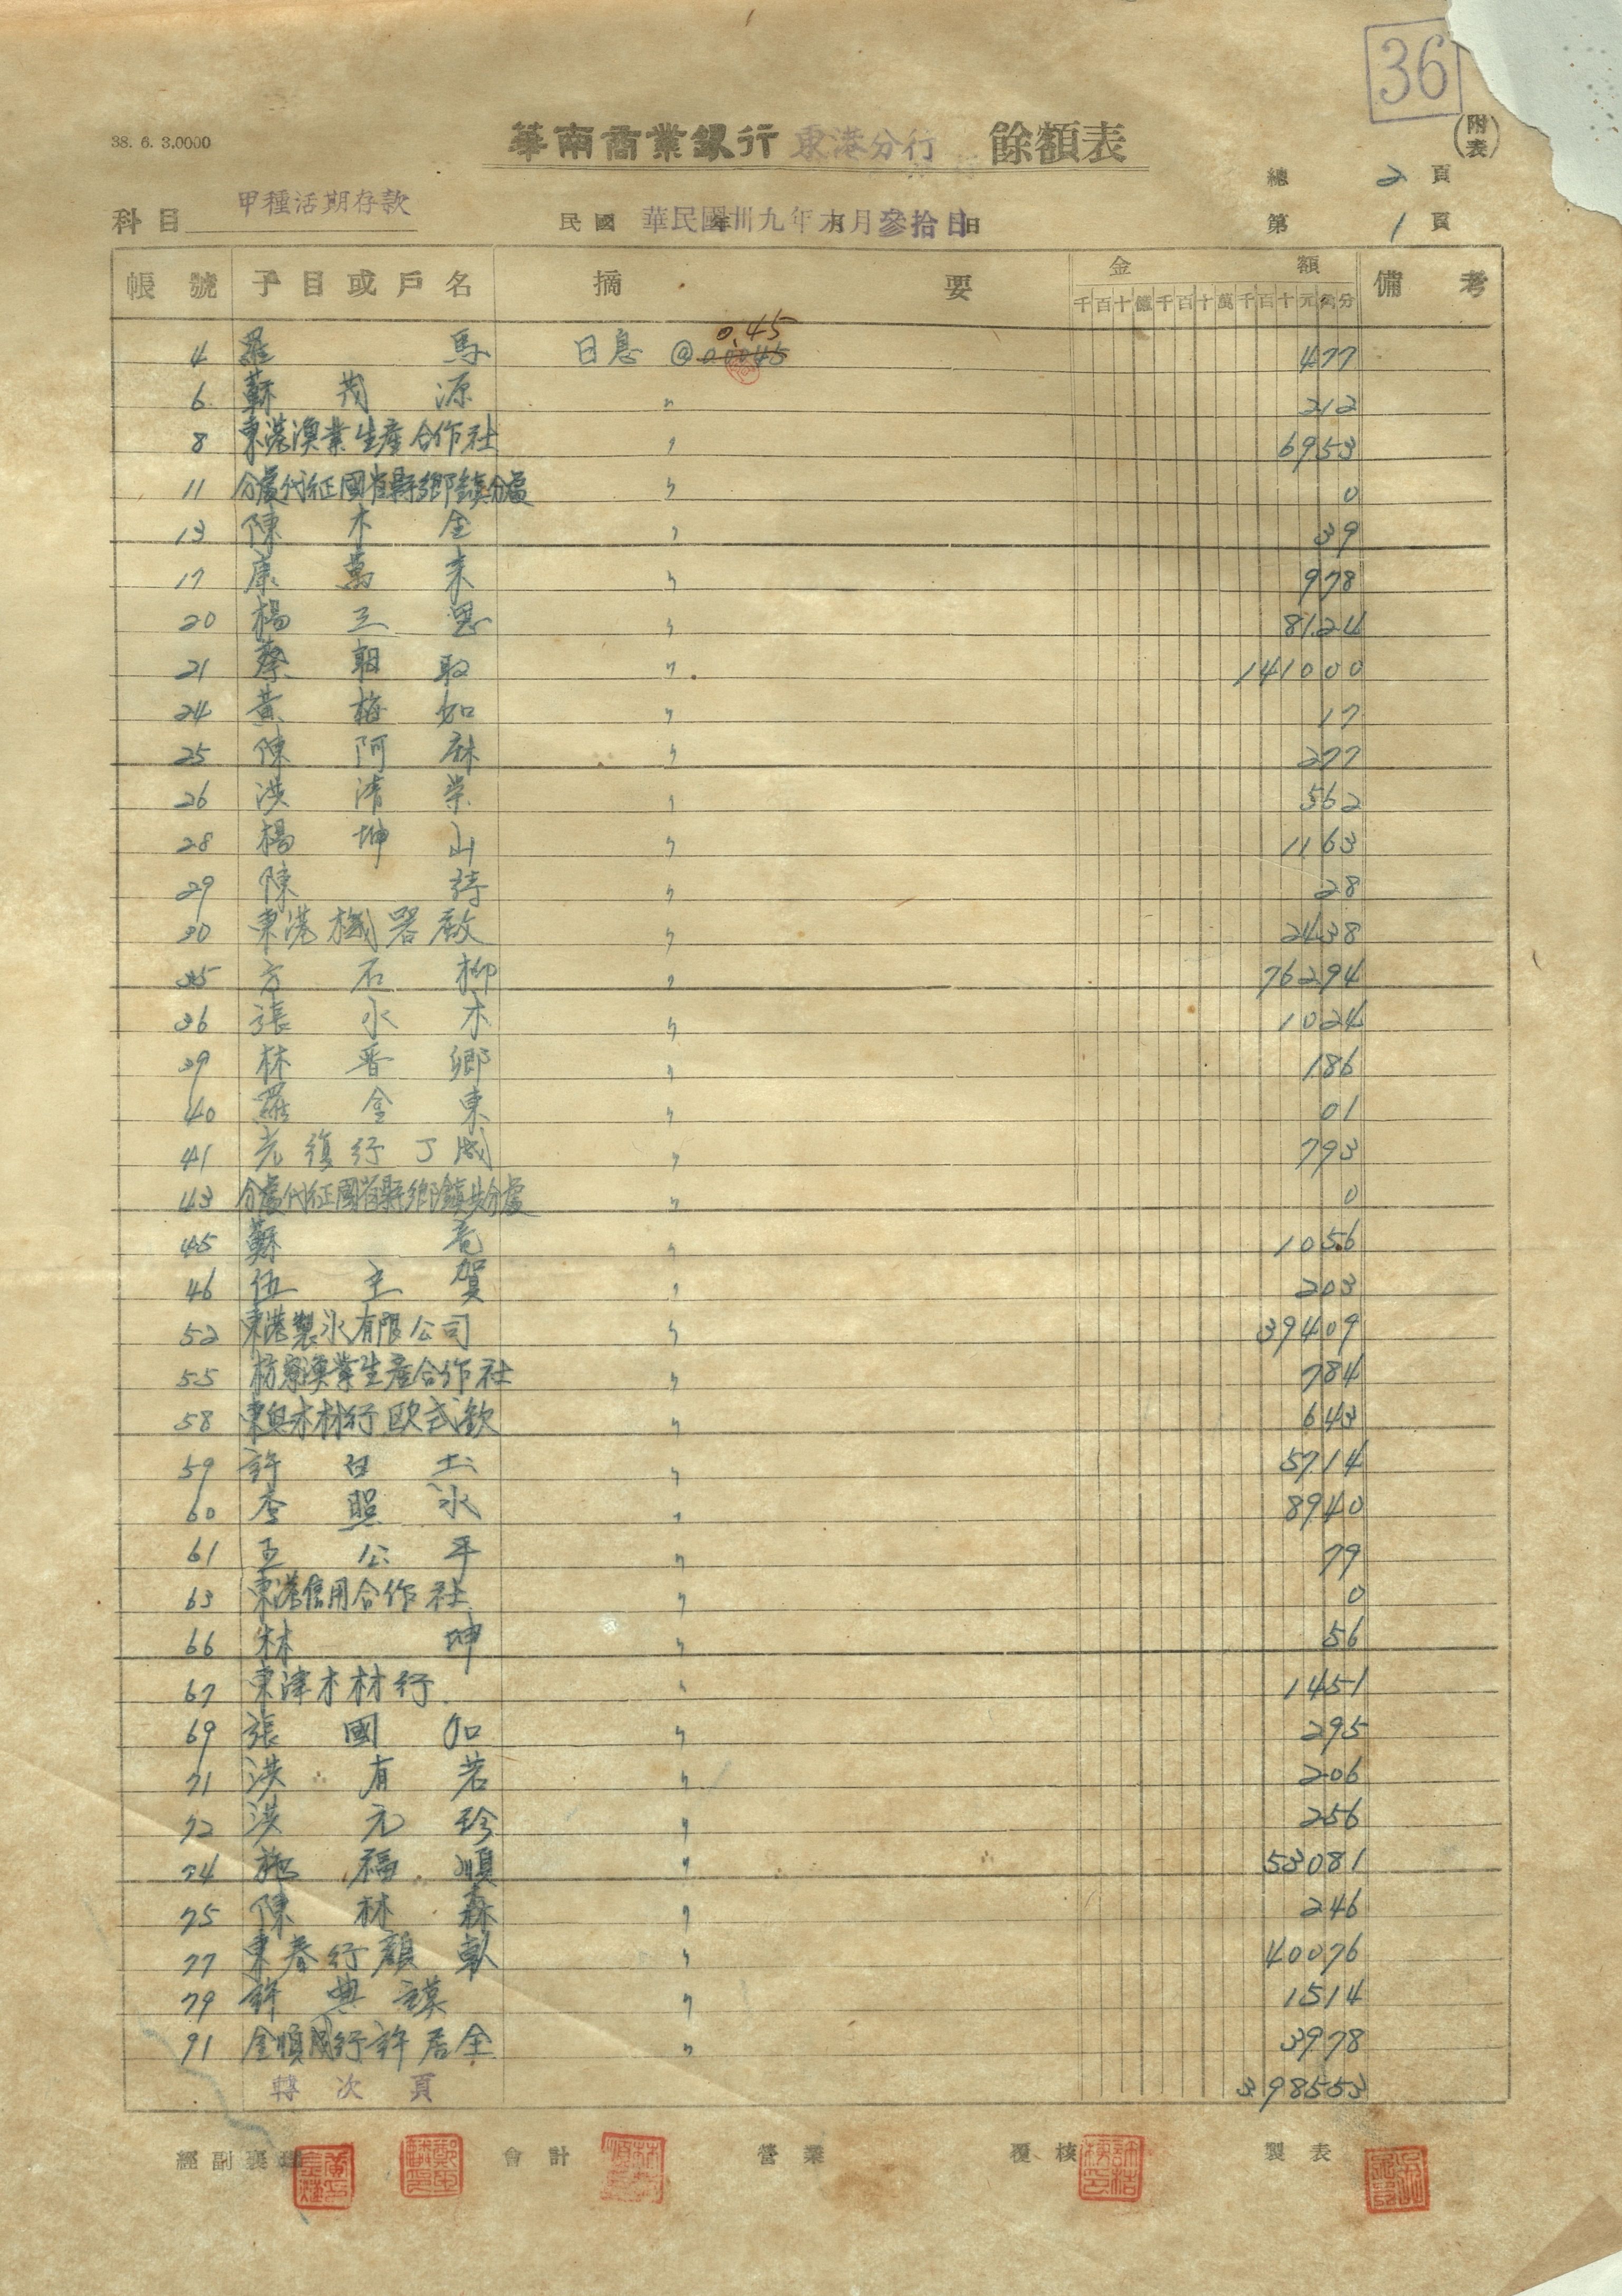 36
38. 6. 3.0000
華南商業銀行 東港分行 餘額表 (附表)
總 2 頁
科目 甲種活期存款
民國 華民國卅九年六月參拾日
第 1 頁
帳號 子目或戶名 摘要 金額 備考
千百十億千百十萬千百十元角分
0.45
4 羅馬 日息 @ 0.0045 477
6 蘇茂源 〃 212
8 東港漁業生産合作社 〃 6953
11 分處代征國省縣鄉鎮分處 〃 0
13 陳木全 〃 39
17 康萬来 〃 978
20 楊三恩 〃 8124
21 蔡朝取 〃 141000
24 黃梅如 〃 17
25 陳阿麻 〃 277
26 洪清榮 〃 562
28 楊坤山 〃 1163
29 陳 〃 28
30 東港機器廠 〃 2438
35 方石柳 〃 76294
36 張永木 〃 1024
39 林番鄉 〃 186
40 羅金東 〃 01
41 行丁 〃 793
43 分處代征國省縣鄉鎮共分處 〃 0
45 蘇竜 〃 1056
46 伍主賀 〃 203
52 東港製氷有限公司 〃 39409
55 枋寮漁業生産合作社 〃 784
58 東與木材行欧武 〃 643
59 許白 〃 5714
60 李照氷 〃 8940
61 王公平 〃 79
63 東港信用合作社 〃 0
66 林坤 〃 56
67 東津木材行 〃 1451
69 張國加 〃 295
71 洪有若 〃 206
72 洪元珍 〃 256
74 施福順 〃 53081
75 陳林森 〃 246
77 東春行顏 〃 40076
79 許典謀 〃 1514
91 金順成行許居全 〃 3978
轉次頁 398553
經副襄理 會計 營業 覆核 製表